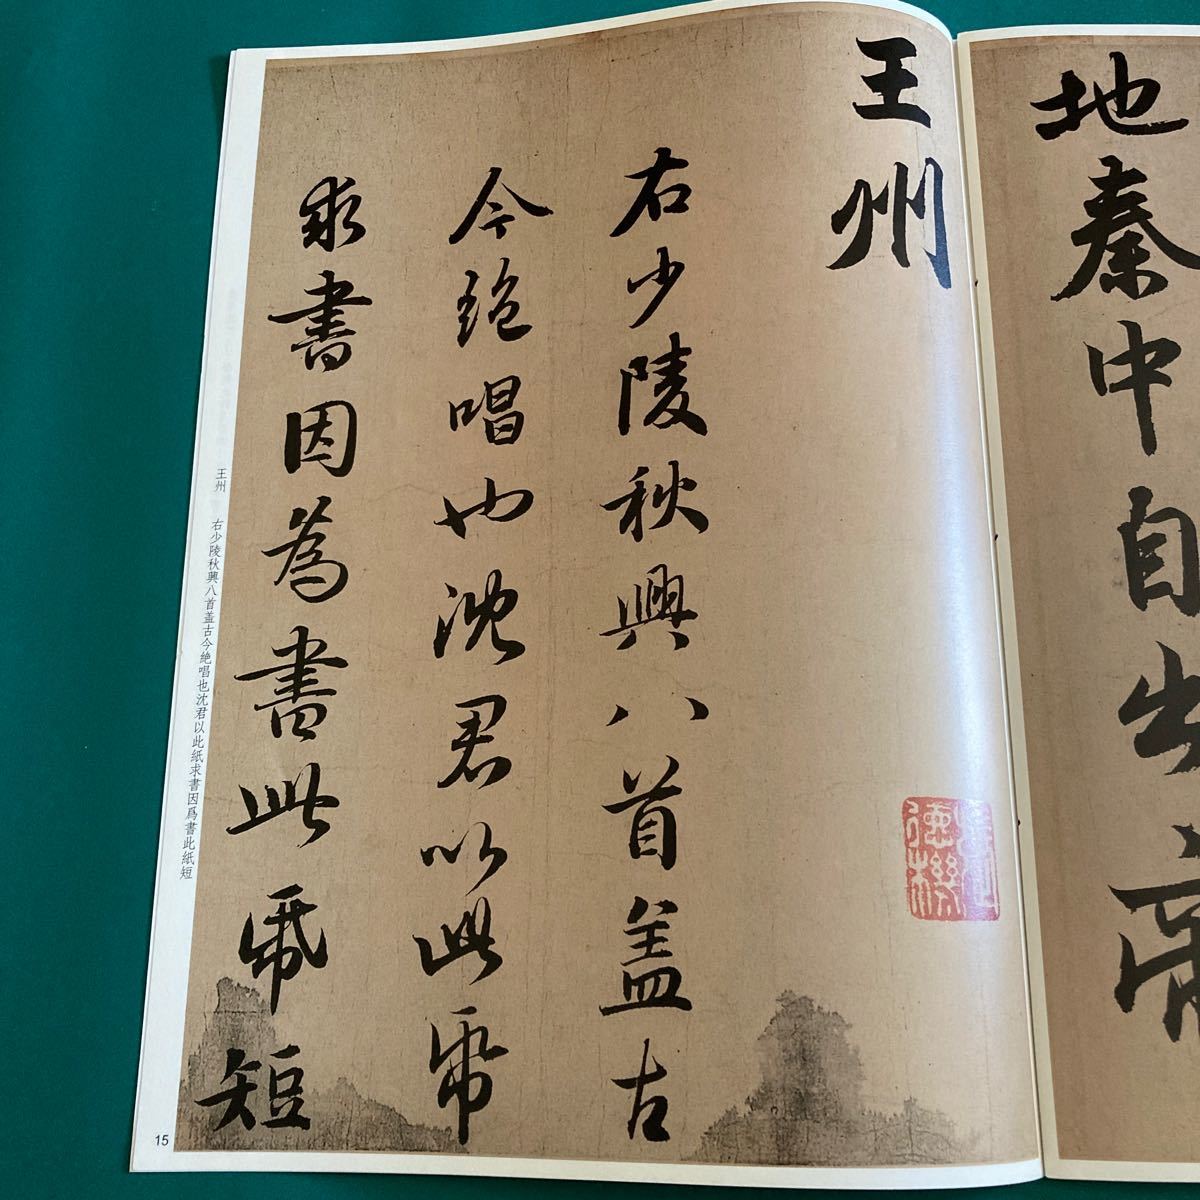 地秦中自出帝
王州
右少陵秋興八首盖古
今絶唱也沈君以此帋
求書因為書此帋短
王州　右少陵秋興八首盖古今絶唱也沈君以此紙求書因爲書此紙短
15